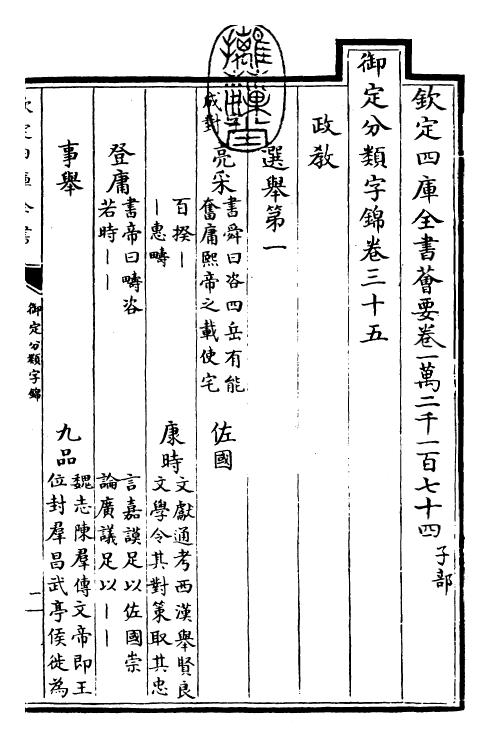 欽定四庫全書薈要卷一萬二千一百七十四 子部
御定分類字錦卷三十五
政教
選舉第一
成對
亮采 書舜曰咨四岳有能
奮庸熙帝之載使宅
佐國
百揆丨
丨惠疇
康時 文獻通考西漢舉賢良
文學令其對策取其忠
登庸 書帝曰疇咨
若時丨丨
言嘉謨足以佐國崇
論廣議足以丨丨
事舉
九品 魏志陳羣傳文帝即王
位封羣昌武亭侯徙為
御定分類字錦